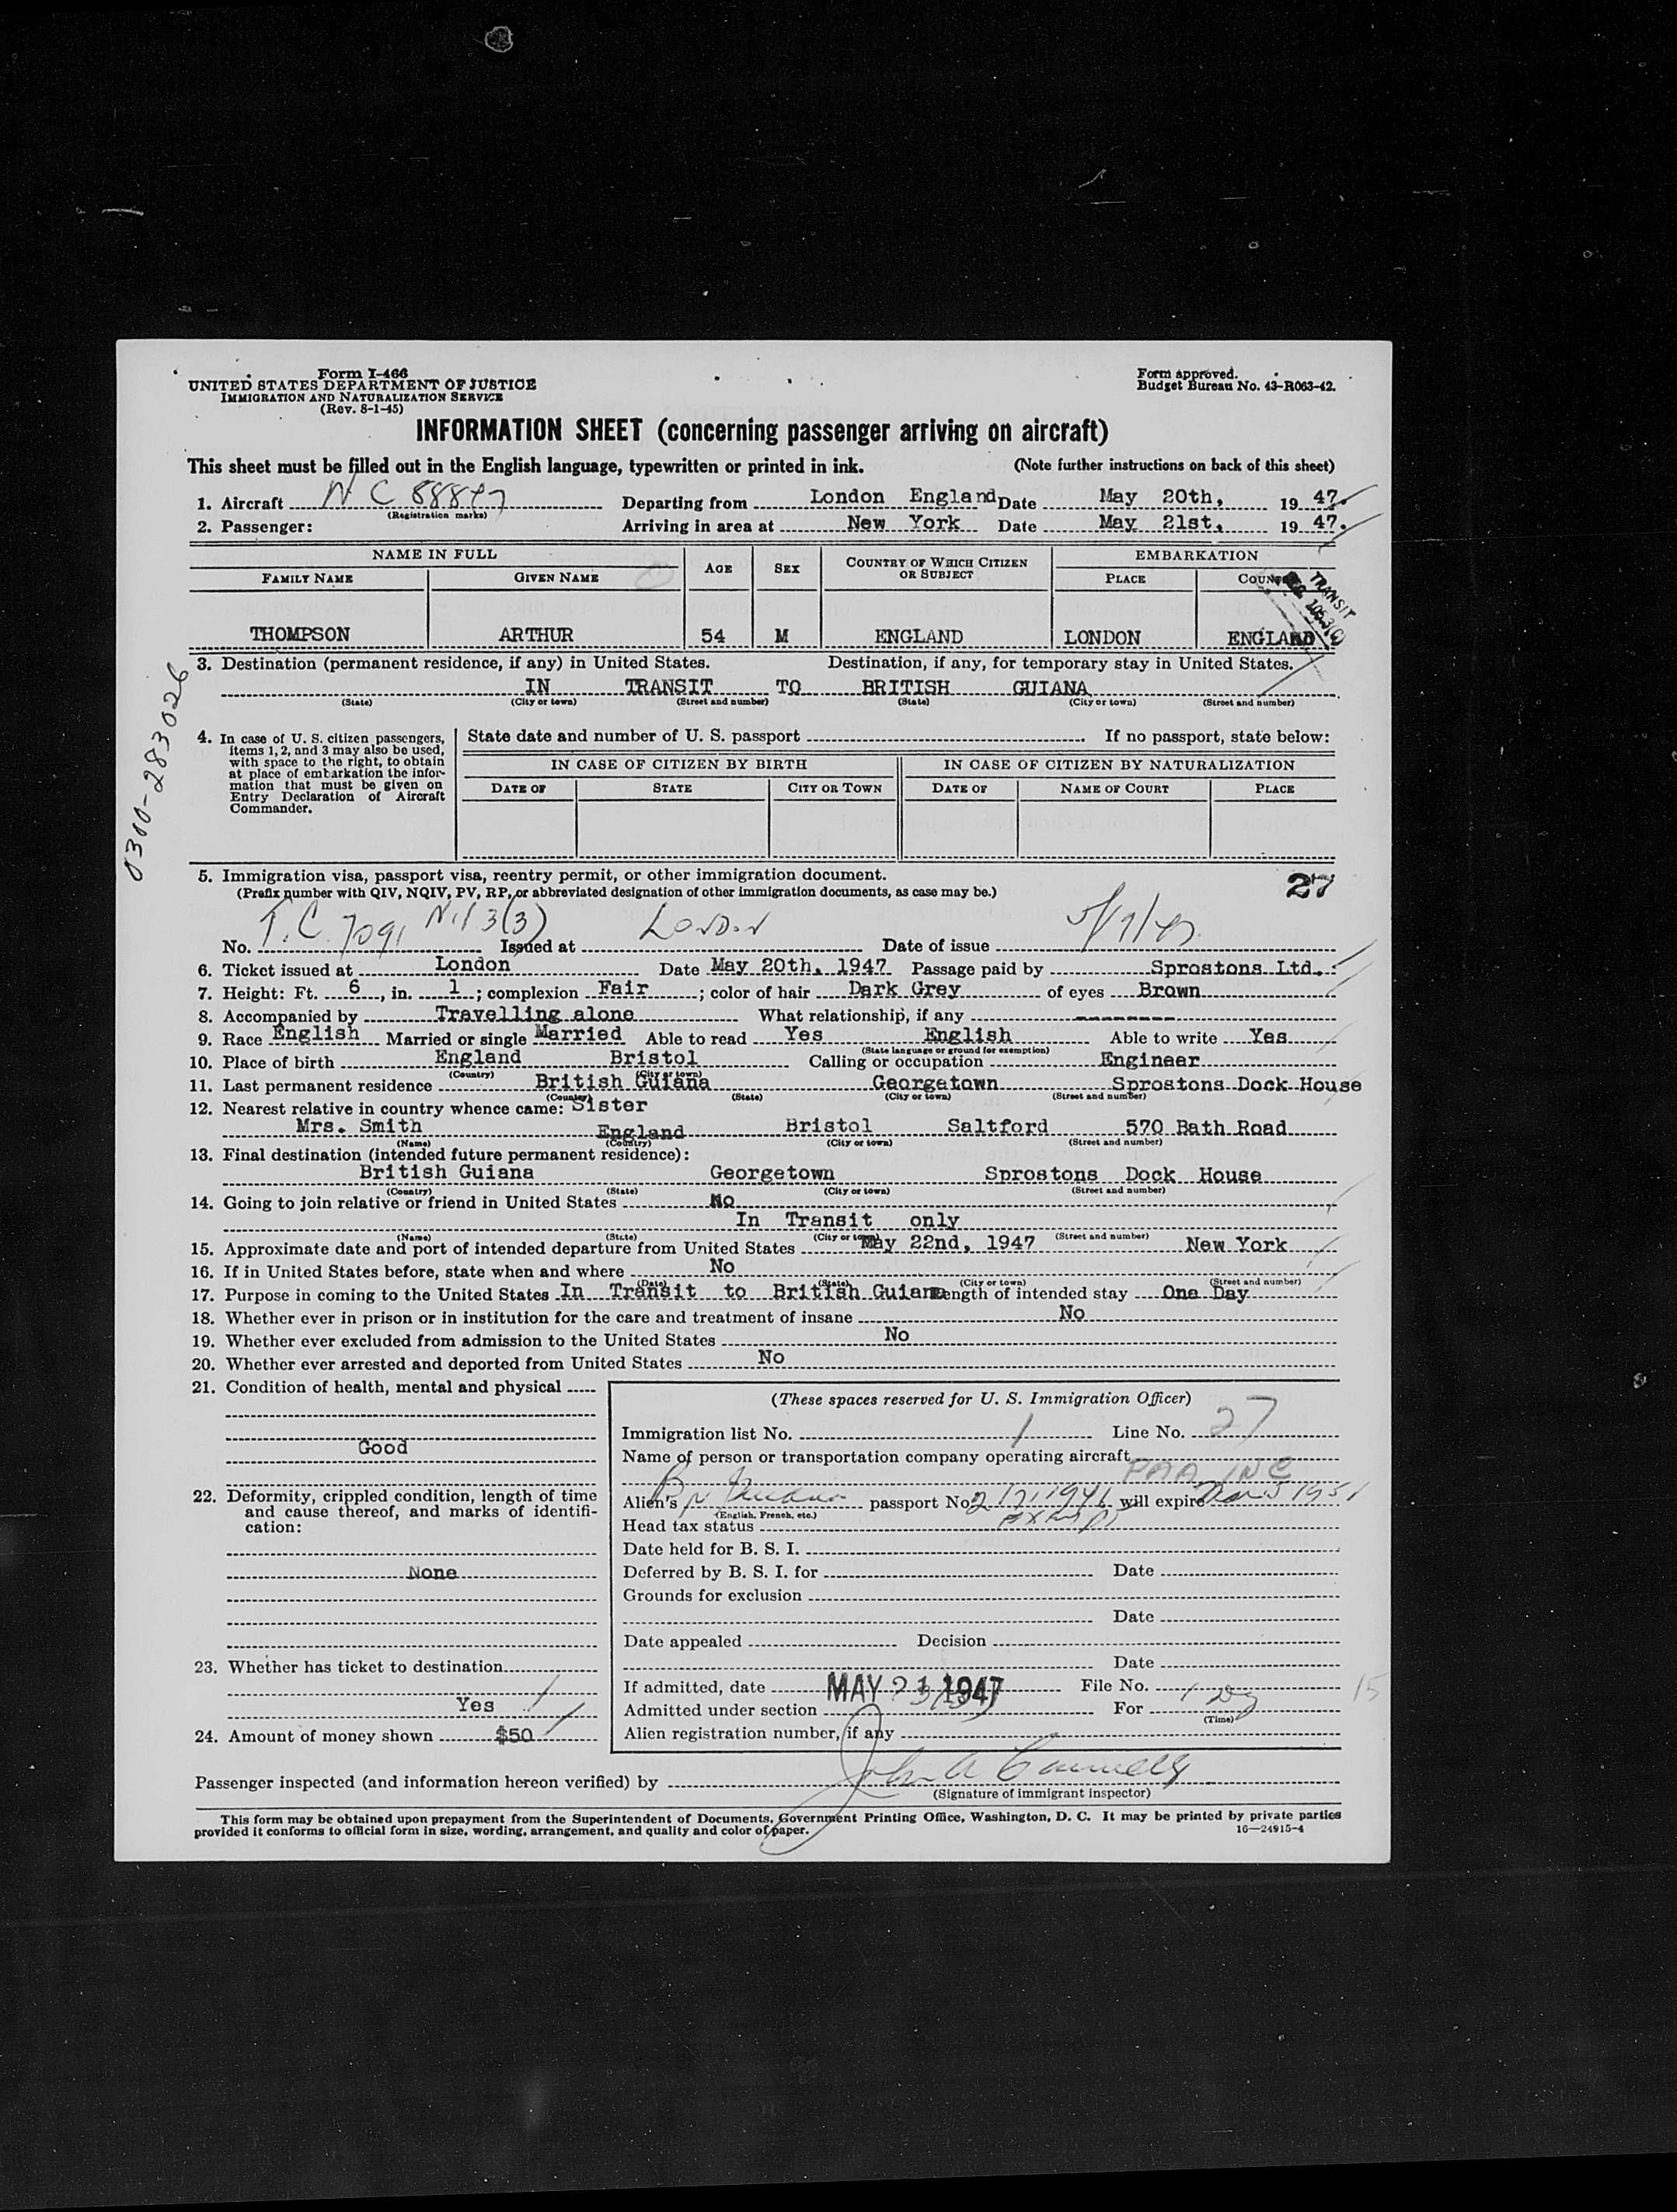 Form I-466
UNITED STATES DEPARTMENT OF JUSTICE
IMMIGRATION AND NATURALIZATION SERVICE
(Rev. 8-1-45)
Form approved.
Budget Bureau No. 43-R063-42.
INFORMATION SHEET (concerning passenger arriving on aircraft)
This sheet must be filled out in the English language, typewritten or printed in ink. (Note further instructions on back of this sheet)
1. Aircraft N C 88847 Departing from London England Date May 20th, 1947.
(Registration marks)
2. Passenger: Arriving in area at New York Date May 21st, 1947.
NAME IN FULL AGE SEX COUNTRY OF WHICH CITIZEN OR SUBJECT EMBARKATION
FAMILY NAME GIVEN NAME PLACE COUNTRY
TRANSIT
THOMPSON ARTHUR 54 M ENGLAND LONDON ENGLAND
3. Destination (permanent residence, if any) in United States. Destination, if any, for temporary stay in United States.
IN TRANSIT TO BRITISH GUIANA
(State) (City or town) (Street and number) (State) (City or town) (Street and number)
0300-283026
4. In case of U. S. citizen passengers, items 1, 2, and 3 may also be used, with space to the right, to obtain at place of embarkation the information that must be given on Entry Declaration of Aircraft Commander.
State date and number of U. S. passport If no passport, state below:
IN CASE OF CITIZEN BY BIRTH IN CASE OF CITIZEN BY NATURALIZATION
DATE OF STATE CITY OR TOWN DATE OF NAME OF COURT PLACE
5. Immigration visa, passport visa, reentry permit, or other immigration document.
(Prefix number with QIV, NQIV, PV, RP, or abbreviated designation of other immigration documents, as case may be.)
27
No. T.C. 7091 3(3) Issued at London Date of issue
6. Ticket issued at London Date May 20th, 1947 Passage paid by Sprostons Ltd.
7. Height: Ft. 6, in. 1; complexion Fair; color of hair Dark Grey of eyes Brown
8. Accompanied by Travelling alone What relationship, if any --------
9. Race English Married or single Married Able to read Yes English Able to write Yes
(State language or ground for exemption)
10. Place of birth England Bristol Calling or occupation Engineer
(Country) (City or town)
11. Last permanent residence British Guiana Georgetown Sprostons Dock House
(Country) (State) (City or town) (Street and number)
12. Nearest relative in country whence came: Sister
Mrs. Smith England Bristol Saltford 570 Bath Road
(Name) (Country) (City or town) (Street and number)
13. Final destination (intended future permanent residence):
British Guiana Georgetown Sprostons Dock House
(Country) (State) (City or town) (Street and number)
14. Going to join relative or friend in United States No
In Transit only
(Name) (State) (City or town) (Street and number)
15. Approximate date and port of intended departure from United States May 22nd, 1947 New York
16. If in United States before, state when and where No
(Date) (State) (City or town) (Street and number)
17. Purpose in coming to the United States In Transit to British Guiana Length of intended stay One Day
18. Whether ever in prison or in institution for the care and treatment of insane No
19. Whether ever excluded from admission to the United States No
20. Whether ever arrested and deported from United States No
21. Condition of health, mental and physical
Good
22. Deformity, crippled condition, length of time and cause thereof, and marks of identification:
None
23. Whether has ticket to destination
Yes
24. Amount of money shown $50
(These spaces reserved for U. S. Immigration Officer)
Immigration list No. 1 Line No. 27
Name of person or transportation company operating aircraft
PAA INC
Alien's passport No. will expire 1951
(English, French, etc.)
Head tax status
Date held for B. S. I.
Deferred by B. S. I. for Date
Grounds for exclusion
Date
Date appealed Decision
Date
If admitted, date MAY 21 1947 File No.
Admitted under section For 1 Dy
(Time)
15
Alien registration number, if any
Passenger inspected (and information hereon verified) by John A Connelly
(Signature of immigrant inspector)
This form may be obtained upon prepayment from the Superintendent of Documents, Government Printing Office, Washington, D. C. It may be printed by private parties
provided it conforms to official form in size, wording, arrangement, and quality and color of paper. 16—24915-4